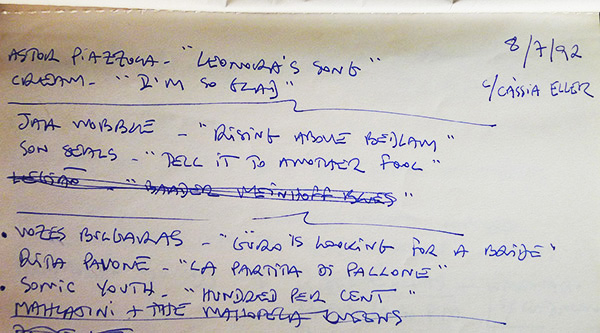 8/7/92
ASTOR PIAZZOLA - "LEONORA'S SONG"
c/ CÁSSIA ELLER
CREAM - "I'M SO GLAD"
JAH WOBBLE - "RISING ABOVE BEDLAM"
SON SEALS - "TELL IT TO ANOTHER FOOL"
LEGIÃO - "BAADER MEINHOFF BLUES"
• VOZES BULGARAS - "GURO IS LOOKING FOR A BRIDE"
RITA PAVONE - "LA PARTITA DI PALLONE"
• SONIC YOUTH - "HUNDRED PER CENT"
MAHLATINI + THE MAHOTELA QUEENS